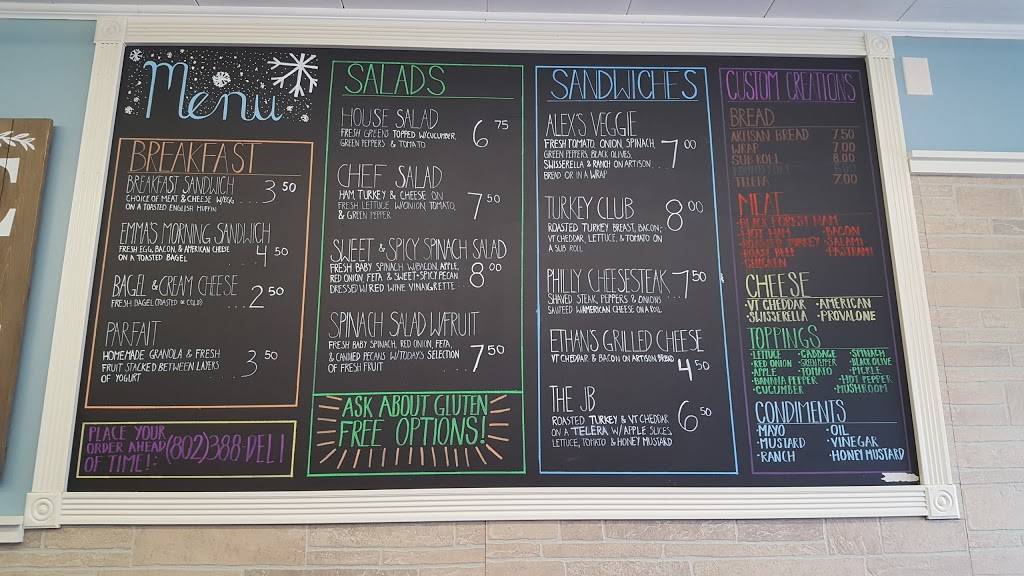 Menu
BREAKFAST
BREAKFAST SANDWICH
CHOICE OF MEAT & CHEESE W/EGG
ON A TOASTED ENGLISH MUFFIN
3 50
EMMA'S MORNING SANDWICH
FRESH EGG, BACON, & AMERICAN CHEESE
ON A TOASTED BAGEL 4 50
BAGEL & CREAM CHEESE
FRESH BAGEL (TOASTED OR COLD) 2 50
PARFAIT
HOMEMADE GRANOLA & FRESH
FRUIT STACKED BETWEEN LAYERS
OF YOGURT ... 3 50
PLACE YOUR
ORDER AHEAD
OF TIME!: (802)388-DELI
SALADS
HOUSE SALAD
FRESH GREENS TOPPED W/CUCUMBER,
GREEN PEPPERS & TOMATO
6 75
CHEF SALAD
HAM TURKEY & CHEESE ON
FRESH LETTUCE W/ONION, TOMATO,
& GREEN PEPPER
7 50
SWEET & SPICY SPINACH SALAD
FRESH BABY SPINACH W/BACON, APPLE,
RED ONION, FETA & SWEET+SPICY PECAN
DRESSED W/ RED WINE VINAIGRETTE ..
8 00
SPINACH SALAD W/FRUIT
FRESH BABY SPINACH, RED ONION, FETA,
& CANDIED PECANS W/TODAY'S SELECTION
OF FRESH FRUIT
7 50
ASK ABOUT GLUTEN
FREE OPTIONS!
SANDWICHES
ALEX'S VEGGIE
FRESH TOMATO, ONION, SPINACH,
GREEN PEPPERS, BLACK OLIVES,
SWISSERELLA & RANCH ON ARTISON
BREAD OR IN A WRAP
7 00
TURKEY CLUB
ROASTED TURKEY BREAST, BACON,
VT CHEDDAR, LETTUCE, & TOMATO ON
A SUB ROLL
8 00
PHILLY CHEESESTEAK
SHAVED STEAK, PEPPERS & ONIONS
SAUTEED W/AMERICAN CHEESE ON A ROLL
7 50
ETHAN'S GRILLED CHEESE
VT CHEDDAR & BACON ON ARTISON BREAD
4 50
THE JB
ROASTED TURKEY & VT CHEDDAR
ON A TELERA W/ APPLE SLICES,
LETTUCE, TOMATO & HONEY MUSTARD
6 50
CUSTOM CREATIONS
BREAD
ARTISAN BREAD 7.50
WRAP 7.00
SUB ROLL 8.00
TELERA 7.00
MEAT
•BLACK FOREST HAM
•HOT HAM •BACON
•ROASTED TURKEY •SALAMI
•ROAST BEEF •PASTRAMI
•CHICKEN
CHEESE
•VT CHEDDAR •AMERICAN
•SWISSERELLA •PROVALONE
TOPPINGS
•LETTUCE •CABBAGE •SPINACH
•RED ONION •GREEN PEPPER •BLACK OLIVE
•APPLE •TOMATO •PICKLE
•BANANA PEPPER •HOT PEPPER
•CUCUMBER •MUSHROOM
CONDIMENTS
•MAYO •OIL
•MUSTARD •VINEGAR
•RANCH •HONEY MUSTARD